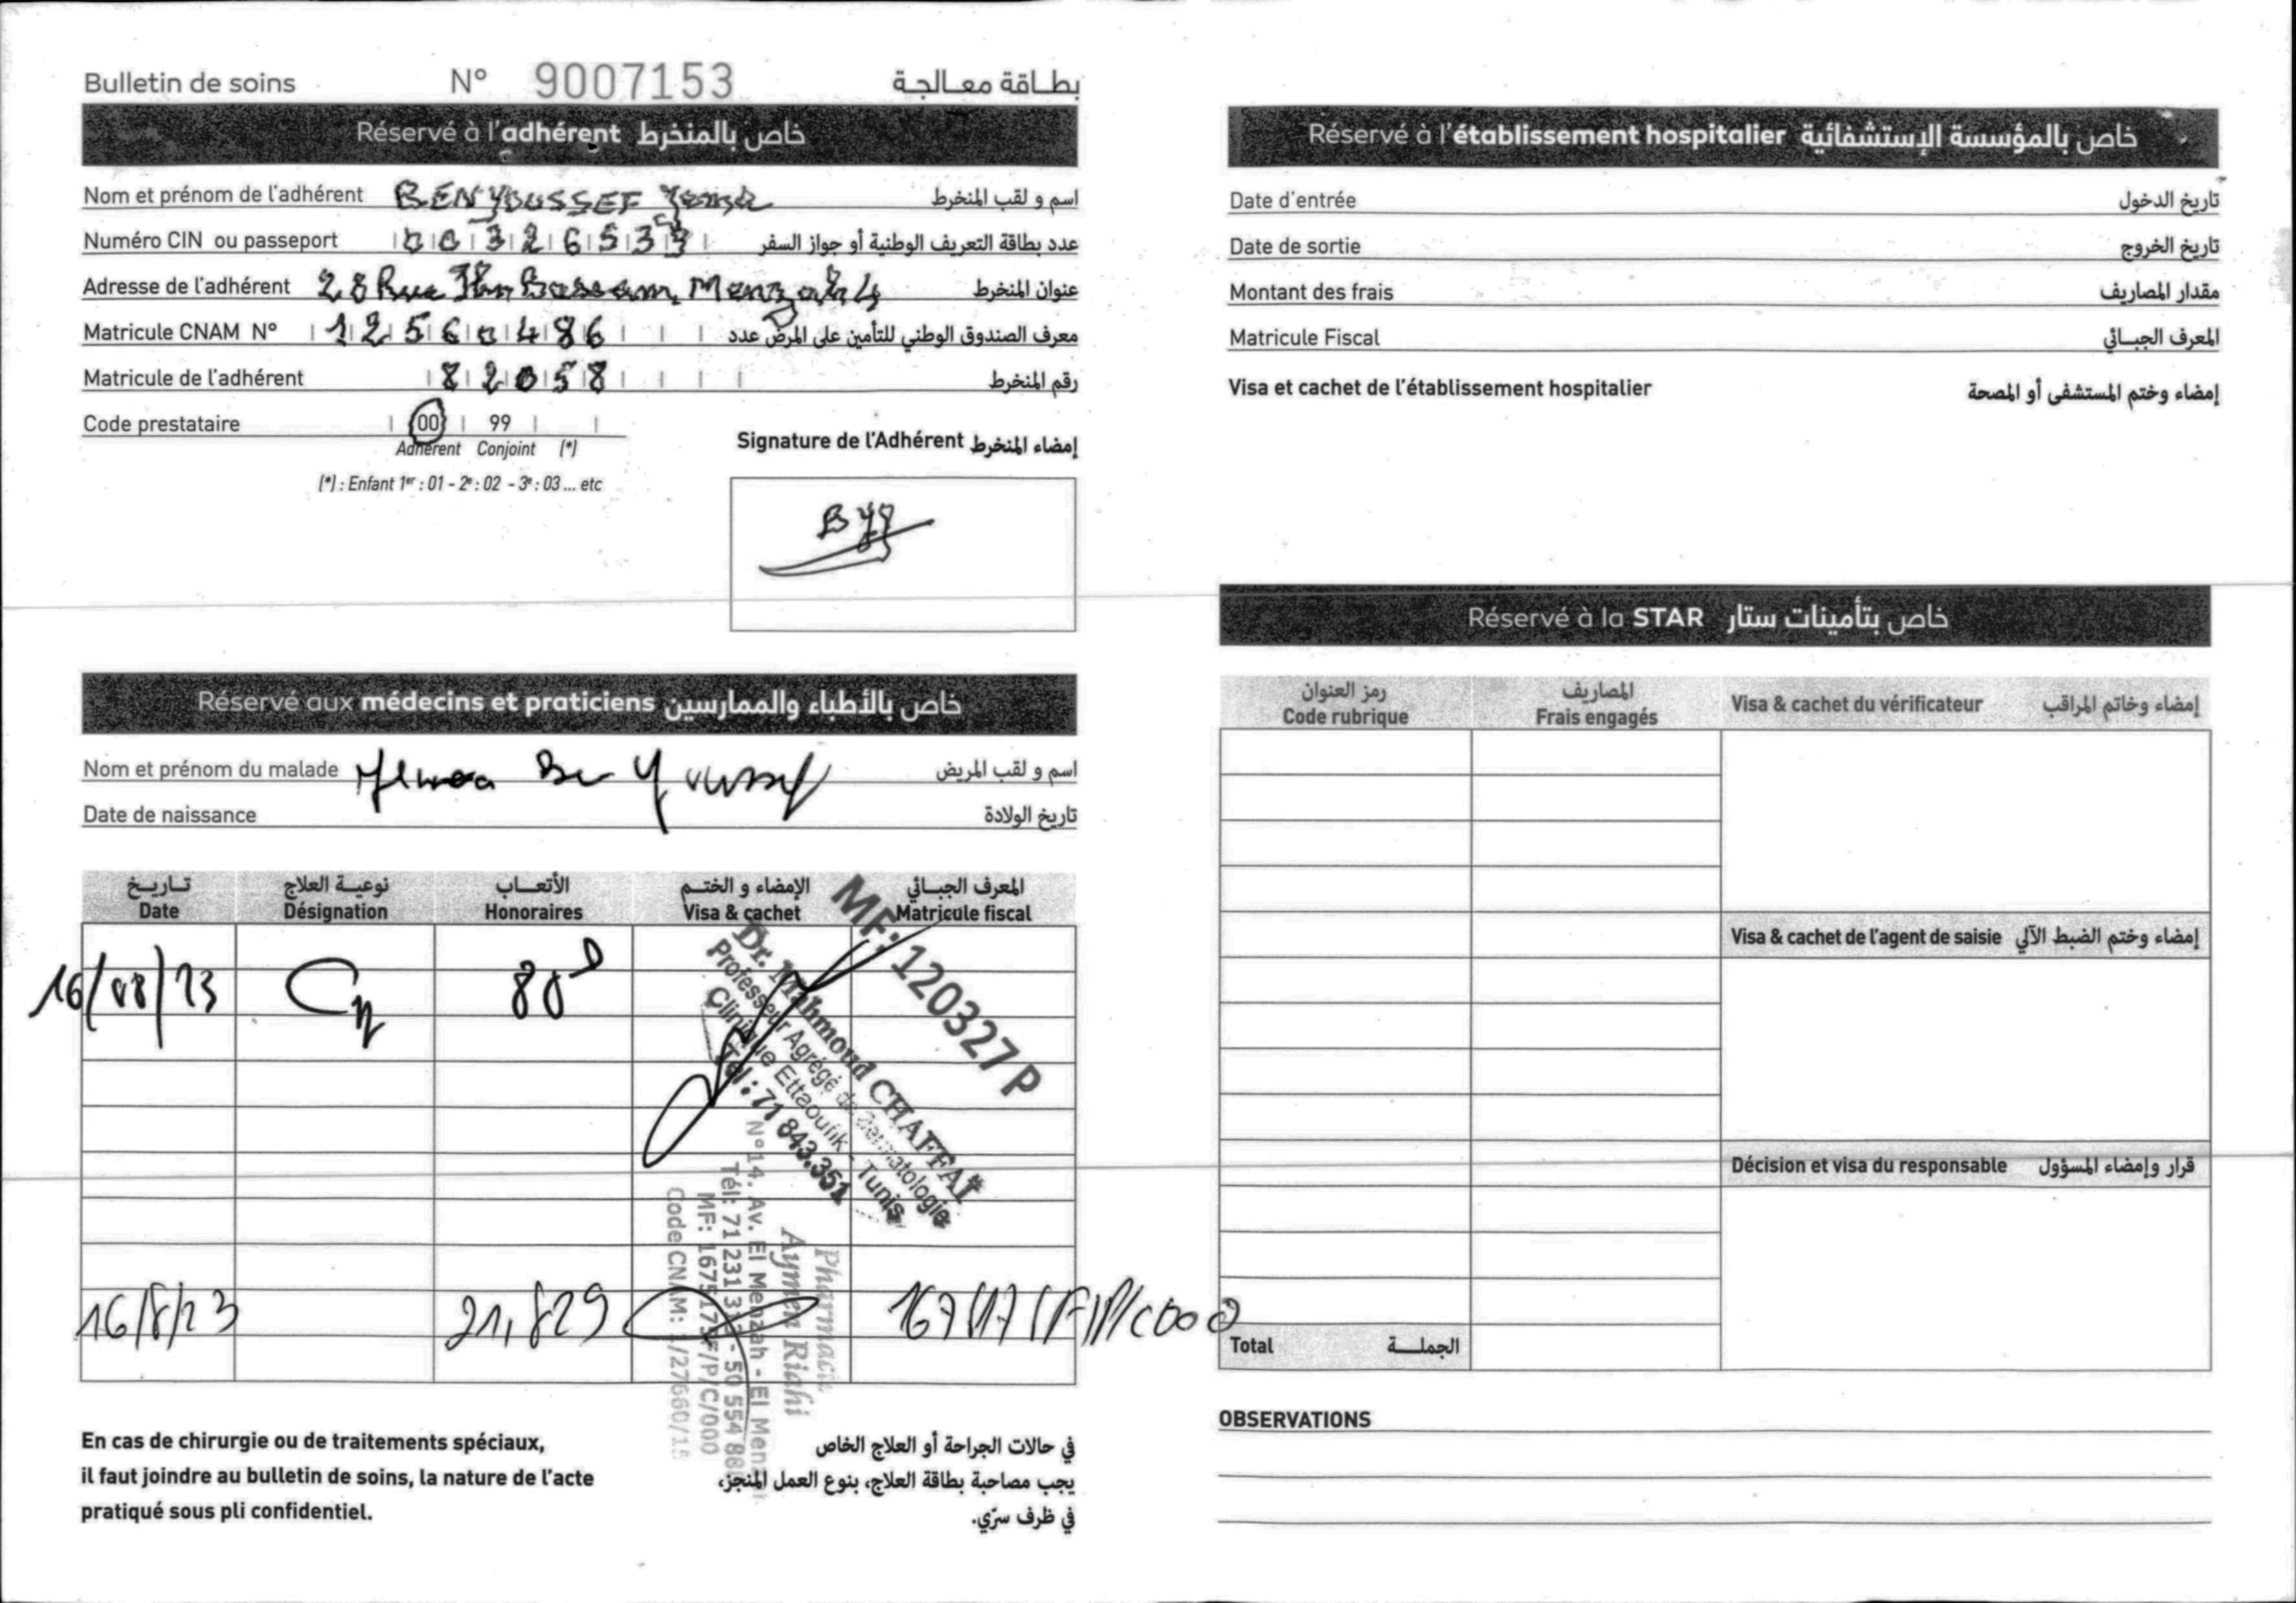 Bulletin de soins N° 9007153 بطاقة معالجة
Réservé à l'adhérent خاص بالمنخرط
Nom et prénom de l'adhérent BEN YOUSSEF اسم و لقب المنخرط
Numéro CIN ou passeport عدد بطاقة التعريف الوطنية أو جواز السفر
Adresse de l'adhérent 28 Rue Ibn Bassam, Menzah 4 عنوان المنخرط
Matricule CNAM N° 12560486 معرف الصندوق الوطني للتأمين على المرض عدد
Matricule de l'adhérent 82058 رقم المنخرط
Code prestataire 00 99
Adhérent Conjoint (*)
(*) : Enfant 1er : 01 - 2e : 02 - 3e : 03 ... etc
Signature de l'Adhérent إمضاء المنخرط
Réservé aux médecins et praticiens خاص بالأطباء والممارسين
Nom et prénom du malade Ben Youssef اسم و لقب المريض
Date de naissance تاريخ الولادة
تاريخ نوعية العلاج الأتعاب الإمضاء و الختم المعرف الجبائي
Date Désignation Honoraires Visa & cachet Matricule fiscal
16/08/23 80D
MF: 120327 P
Dr. Mahmoud CHAFFAI
Professeur Agrégé de Dermatologie
Clinique Ettaoufik - Tunis
Tél : 71 843.351
16/8/23 21,829
Pharmacie
Aymen Riahi
N°14. Av. El Menzah - El
Tél: 71 231 - 50 554
MF: /P/C/000
Code CNAM:
En cas de chirurgie ou de traitements spéciaux,
il faut joindre au bulletin de soins, la nature de l'acte
pratiqué sous pli confidentiel.
في حالات الجراحة أو العلاج الخاص
يجب مصاحبة بطاقة العلاج، بنوع العمل المنجز،
في ظرف سرّي.
Réservé à l'établissement hospitalier خاص بالمؤسسة الإستشفائية
Date d'entrée تاريخ الدخول
Date de sortie تاريخ الخروج
Montant des frais مقدار المصاريف
Matricule Fiscal المعرف الجبائي
Visa et cachet de l'établissement hospitalier إمضاء وختم المستشفى أو المصحة
Réservé à la STAR خاص بتأمينات ستار
رمز العنوان المصاريف
Code rubrique Frais engagés Visa & cachet du vérificateur إمضاء وخاتم المراقب
Visa & cachet de l'agent de saisie إمضاء وختم الضبط الآلي
Décision et visa du responsable قرار وإمضاء المسؤول
Total الجملة
OBSERVATIONS